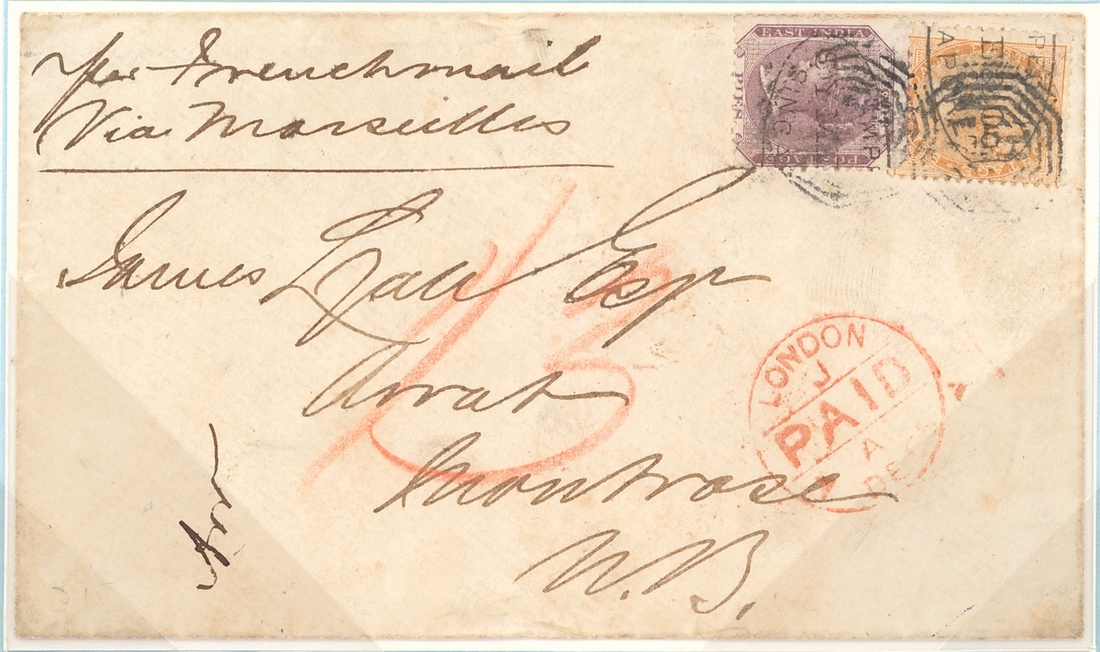 per French mail
Via Marseilles
EAST INDIA
POSTAGE
James Lyall Esqr
Arrat
Montrose
N.B.
1/3
LONDON
J
PAID
A
DE